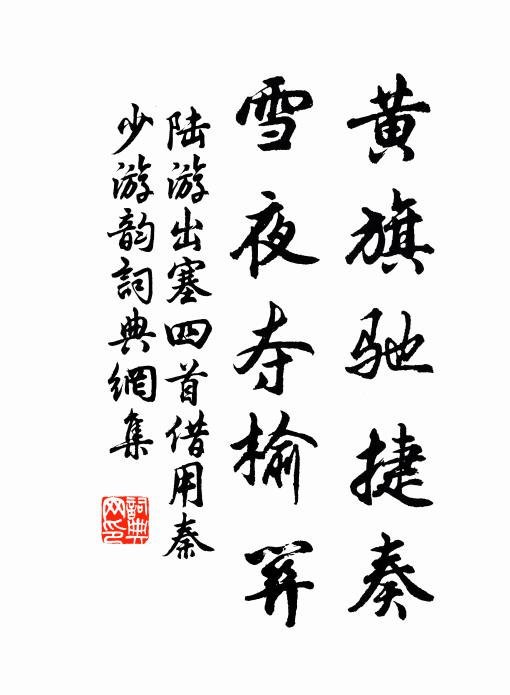 黄旗驰捷奏
雪夜夺榆关
陆游出塞四首借用秦
少游韵詞典網集
詞典
网印